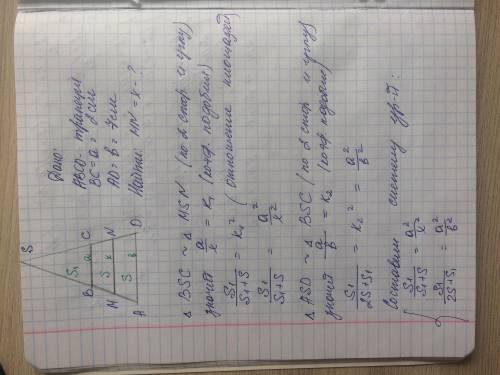 Дано:
ABCD - трапеция
BC = a = 2см
AD = b = 7см
Найти: MN = x - ?
S
S₁
B a C
S x
M N
S b
A D
Δ BSC ~ Δ MSN (по 2 стор. и углу)
значит a/x = k₁ (коэф. подобия)
S₁/S₁+S = k₁² (отношение площадей)
S₁/S₁+S = a²/x²
Δ ASD ~ Δ BSC (по 2 стор. и углу)
значит a/b = k₂ (коэф. подобия)
S₁/2S+S₁ = k₂² = a²/b²
Составим систему ур-й:
{ S₁/S₁+S = a²/x²
S₁/2S+S₁ = a²/b²